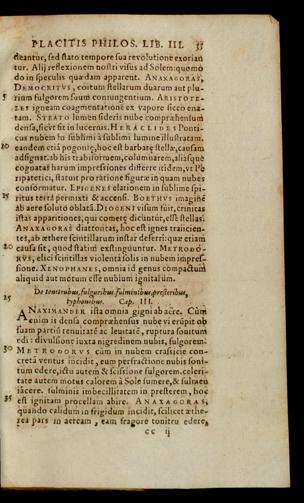 PLACITIS PHILOS. LIB. III. 57
deantur, sed stato tempore sua revolutione exorian
tur. Alij reflexionem nostri visus ad Solem: quomo
do in speculis quædam apparent. ANAXAGORAS,
DEMOCRITVS, coitum stellarum duarum aut plu
5 rium fulgorem suum coniungentium. ARISTOTE-
LES igneam coagmentationé ex vapore sicco ena-
tam. STRATO lumen sideris nube comprehensum
densa, sicvt fit in lucernis. HERACLIDES Ponti-
cus nubem in sublimi à sublimi lumine illustratam.
20 eandem etiā pogonię, hoc est barbatę stellæ, causam
adsignat. ab his trabiformem, columnarem, aliasque
cognatas harum impressiones differre itidem, vt Pe
ripatetici, statuit pro ratione figuræ in quam nubes
conformatur. EPIGENES elationem in sublime spi-
25 ritus terrā permixti & accensi. BOETHVS imaginē
ab aere soluto oblatā. DIOGENI visum fuit, crinitas
istas apparitiones, qui cometę dicūtur, esse stellas.
ANAXAGORAS diattontas, hoc est ignes traiicien-
tes, ab æthere scintillarum instar deferri: quæ etiam
20 causa sit, quod statim exstinguūtur. METRODO-
RVS, elici scintillas violentā solis in nubem impres-
sione. XENOPHANES, omnia id genus compactum
aliquid aut motum esse nubium ignitalum.
De tonitrubus, fulguribus, fulminibus, presteribus,
25 typhonibus. Cap. III.
ANAXIMANDER ista omnia gigni ab aëre. Cùm
enim is densa compræhensus nube vi erūpit ob
suam partiū tenuitatē ac leuitatē, ruptura sonitum
edi: divulsione iuxta nigredinem nubis, fulgorem.
30 METRODORVS cùm in nubem crassicie con-
cretā ventus incidit, eum perfractione nubis soni-
tum edere, ictu autem & scissione fulgorem. celeri-
tate autem motus calorem à Sole sumere, & fulmen
iacere. fulminis imbecillitatem in presterem, hoc
35 est ignitam procellam abire. ANAXAGORAS,
quando calidum in frigidum incidit, scilicet æthe-
rea pars in aëream, eam fragore tonitru edere,
cc ij